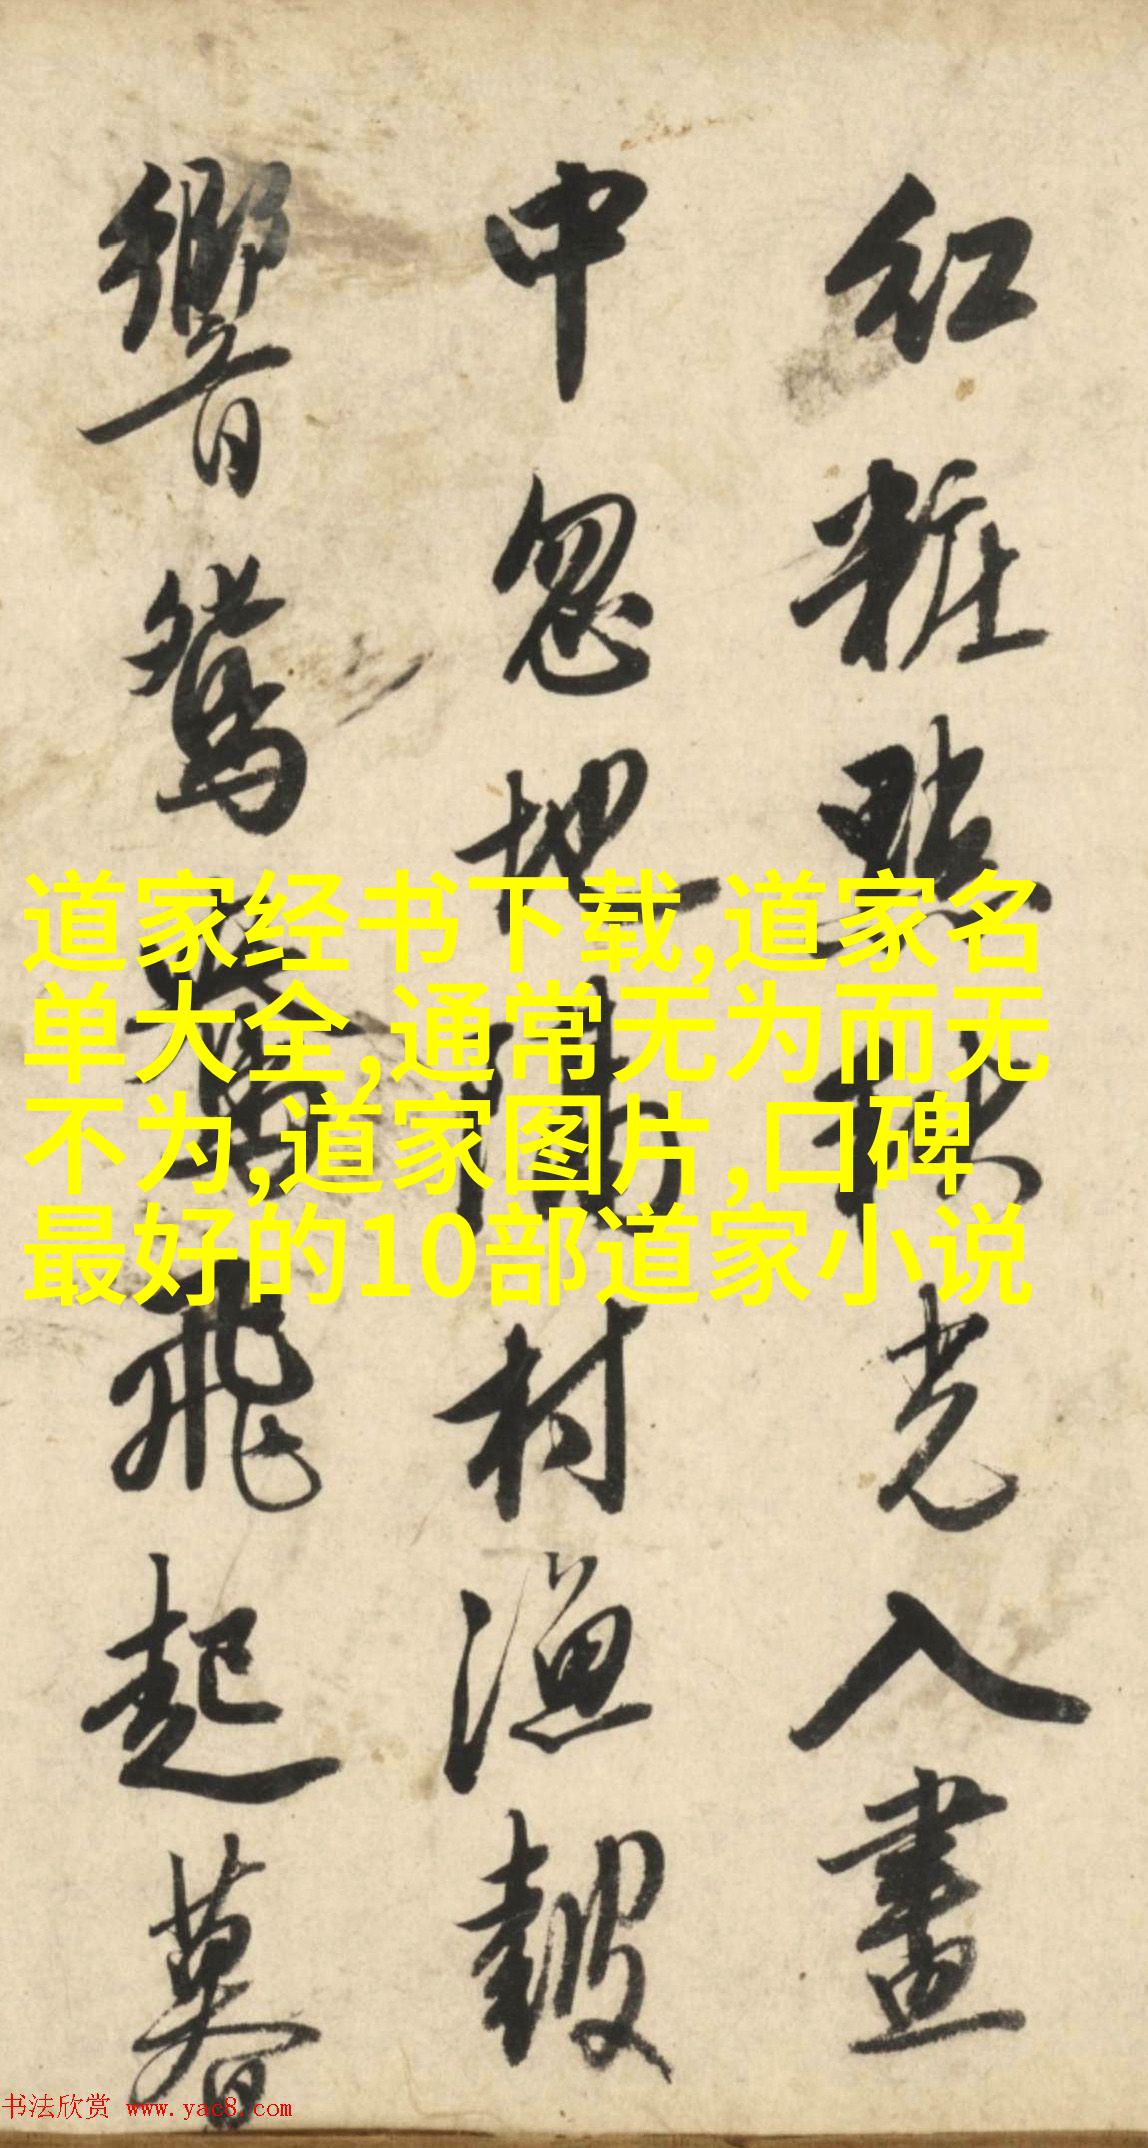 紅粧光入畫
中忽地村漁鼓
響鴛鴦飛起暮
道家经书下载,道家名
单大全,通常无为而无
不为,道家图片,口碑
最好的10部道家小说
书法欣赏 www.yac8.com